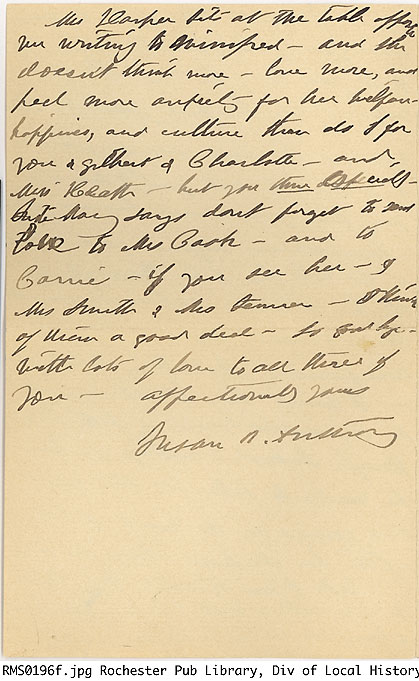 Mrs Harper sits at the table opposite
me writing to Winifred - and she
doesn't think more - love more, and
feel more anxiety for her welfare
happiness, and culture than do I for
you & Gilbert & Charlotte - and
Miss Heath - but you three especially
Sister Mary says don't forget to send
love to Mrs Cook - and to
Carrie - if you see her - &
Mrs Smith & Mrs - I think
of them a good deal - So good bye -
with lots of love to all three of
you - affectionately yours
Susan B. Anthony
RMS0196f.jpg Rochester Pub Library, Div of Local History